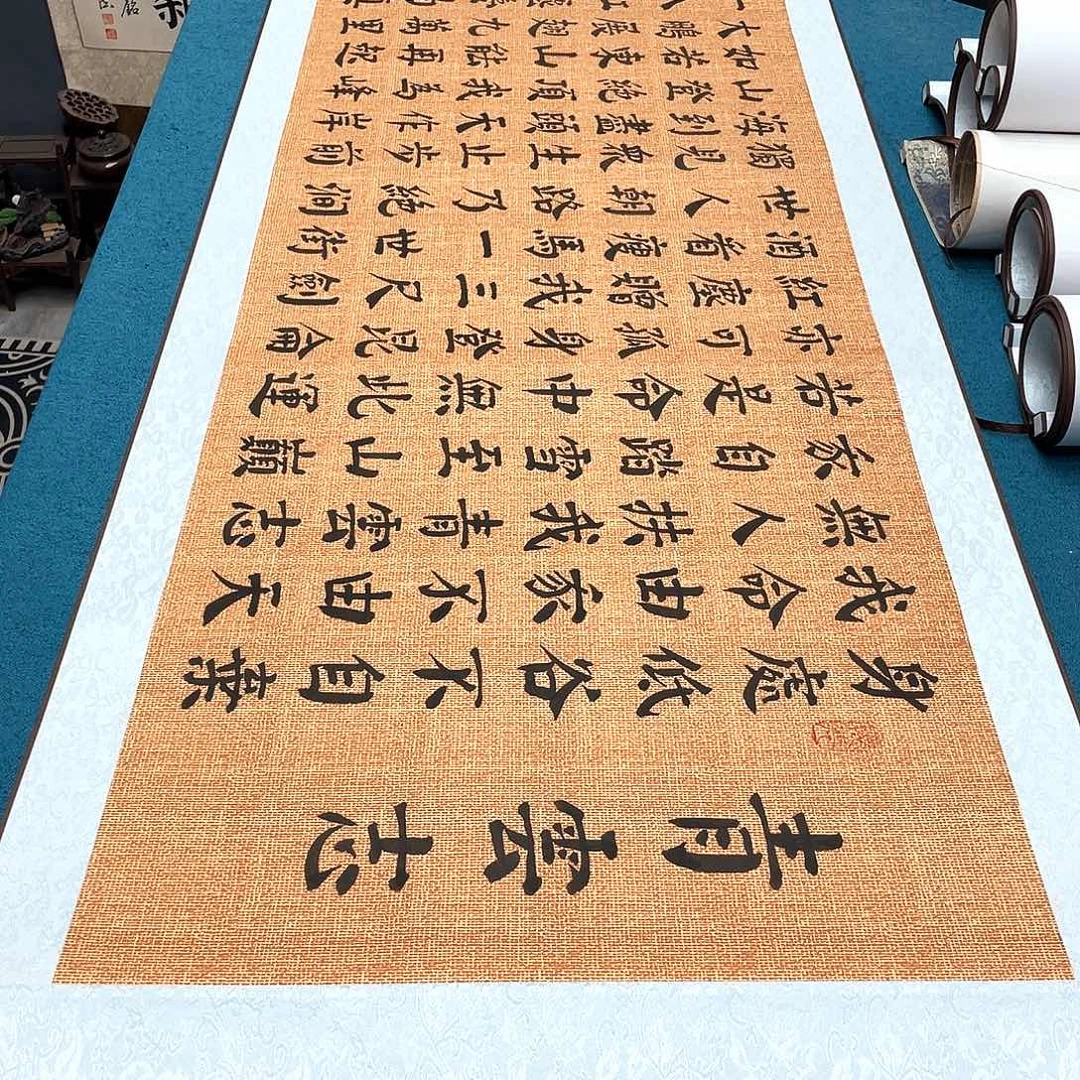 青雲志
身處低谷不自棄
我命由家不由天
無人扶我青雲志
家自踏雪至山巔
若是命中無此運
亦可孤身登混侖
紅塵贈我三尺劍
酒着瘦馬一世街
世人朝路乃絕澗
獨見衆生止步前
海到盡頭天作岸
山登絕頂我為峰
如若東山能再起
大鵬展翅九萬里